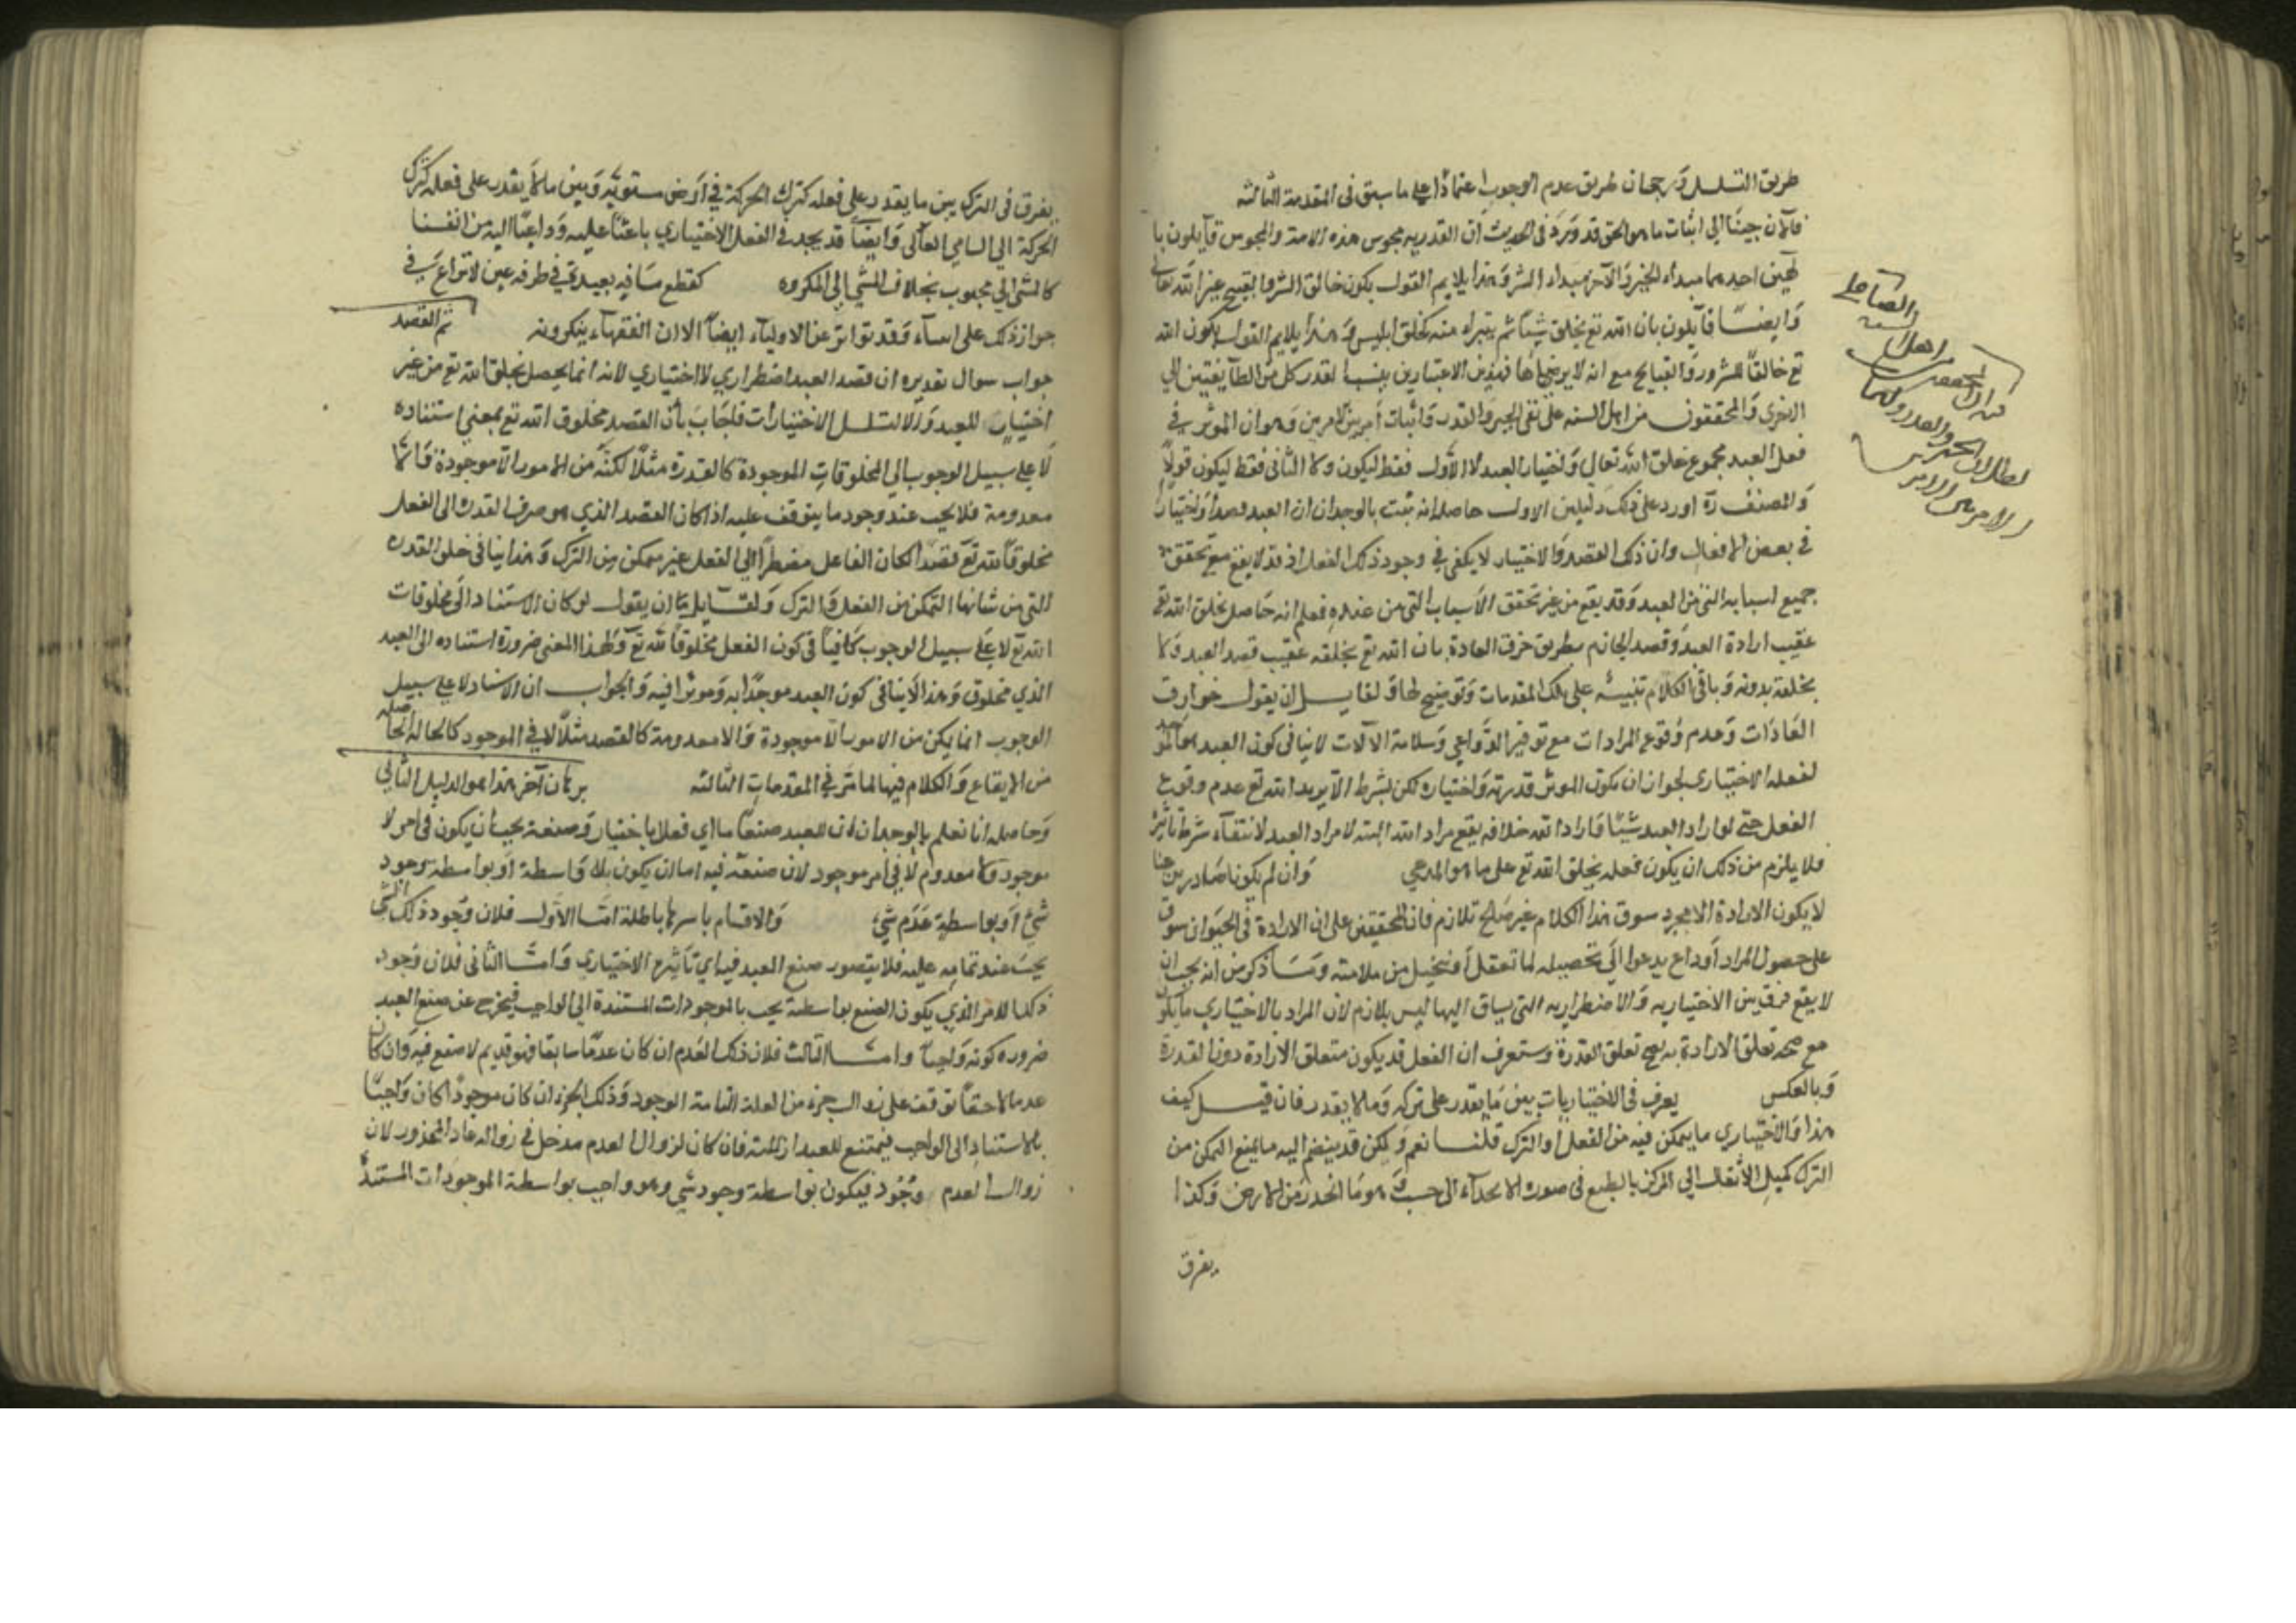 طريق التسلسل ورجحان طريق عدم الوجوب اعتمادا على ما سبق فى المقدمة الثالثة
فالآن جينا الى اثبات ما هو الحق قد ورد فى الحديث ان القدريه مجوس هذه الامة والمجوس قايلون با
لهين احدهما مبداء الخير والآخر مبداء الشر وهذا يلايم القول بكون خالق الشر والقبيح غير الله تعالى
وايضا قايلون بان الله تع يخلق شيئا ثم يتبراء منه كخلق ابليس وهذا يلايم القول بكون الله
تع خالقا للشرور والقبايح مع انه لا يرضيها فبهذين الاعتبارين ينسب القدر كل من الطايفتين الى
الاخرى والمحققون من اهل السنه على نفى الجبر والقدر واثبات امر بين الامرين وهو ان الموثر فى
فعل العبد مجموع خلق الله تعالى واختيار العبد لا الاول فقط ليكون ولا الثانى فقط ليكون قولا
والمصنف ره اورد على ذلك دليلين الاول حاصله انه ثبت بالوجدان ان للعبد قصدا واختيارا
فى بعض الافعال وان ذلك القصد والاختيار لا يكفى فى وجود ذلك الفعل اذ قد لا يقع مع تحقق
جميع اسبابه التى من العبد وقد يقع من غير تحقق الاسباب التى من عنده فعلم انه حاصل بخلق الله تع
عقيب ارادة العبد وقصد الجازم بطريق خرق العادة بان الله تع يخلقه عقيب قصد العبد ولا
يخلقه بدونه وباقى الكلام تنبيه على تلك المقدمات وتوضيح لها ولقايل ان يقول خوارق
العادات وعدم وقوع المرادات مع توفير الدواعى وسلامة الآلات لا ينافى كون العبد هو الموجد
لفعله الاختيارى لجواز ان يكون الموثر قدرته واختياره لكن بشرط الا يريد الله تع عدم وقوع
الفعل حتى لو اراد العبد شيئا واراد الله خلافه يقع مراد الله البته لا مراد العبد لانتفاء شرط تاثير
فلا يلزم من ذلك ان يكون فعله بخلق الله تع على ما هو المدعى وان لم يكونا صادرين عنا
لا يكون الارادة الا مجرد سوق هذا الكلام غير صالح للالزام فان المحققين على ان الارادة فى الحيوان سوق
على حصول المراد او داع يدعوا الى تحصيله لما تعقل او تخيل من ملامته وما ذكر من انه يجب ان
لا يقع فرق بين الاختياريه والاضطراريه التى يساق اليها ليس بلازم لان المراد بالاختيارى ما يكون
مع صحه تعلق الارادة به يصح تعلق القدرة وستعرف ان الفعل قد يكون متعلق الارادة دون القدرة
وبالعكس يعرف فى الاختياريات بين ما يقدر على تركه وما لا يقدر فان قيل كيف
هذا والاختيارى ما يتمكن فيه من الفعل والترك قلنا نعم ولكن قد ينضم اليه ما يمنع التمكن من
الترك كميل الاثقال الى المركز بالطبع فى صورة الانحدار الى صبب وهو ما انحدر من الارض وكذا
يفرق
والصا
اهل السنه
المحققين
الامرين
يفرق فى الترك بين ما يقدر على فعله كترك الحركة فى ارض مستويه وبين ما لا يقدر على فعله كترك
الحركة الى السامى العالى وايضا قد يجد فى الفعل الاختيارى باعثا عليه وداعيا اليه من انفسنا
كالمشى الى محبوب بخلاف المشى الى المكروه كقطع مسافه بعيدة فى طرفه عين لا نزاع فى
جواز ذلك على انبياء وقد تواتر عن الاولياء ايضا الا ان الفقهاء ينكرونه ثم القصد
جواب سوال تقديره ان قصد العبد اضطرارى لا اختيارى لانه انما يحصل بخلق الله تع من غير
اختيار للعبد والا لتسلسل الاختيارات فاجاب بان القصد مخلوق الله تع بمعنى استناده
لا على سبيل الوجوب الى المخلوقات الموجودة كالقدرة مثلا لكنه من الامور اللا موجودة واللا
معدومة فلا يجب عند وجود ما يتوقف عليه اذا كان القصد الذى هو صرف القدرة الى الفعل
مخلوقا لله تع قصدا لكان الفاعل مضطرا الى الفعل غير متمكن من الترك وهذا ينافى خلق القدره
التى من شانها التمكن من الفعل والترك ولقايل ان يقول لو كان الاستناد الى مخلوقات
الله تع لا على سبيل الوجوب كافيا فى كون الفعل مخلوقا لله تع ولهذا المعنى ضرورة استناده الى العبد
الذى مخلوق وهذا لا ينافى كون العبد موجدا به وموثرا فيه والجواب ان الاسناد لا على سبيل
الوجوب انما يكن من الامور اللا موجودة واللا معدومة كالقصد مثلا لا فى الموجود كالحالة الحاصلة
من الايقاع والكلام فيها لما مر فى المقدمات الثالثه برهان آخر هذا هو الدليل الثانى
وحاصله انا نعلم بالوجدان ان للعبد صنعا ما اى فعلا باختيار وصنعة يجب ان يكون فى امر لا
موجود ولا معدوم لا فى امر موجود لان صنعه فيه اما ان يكون بلا واسطة او بواسطة وجود
شئ او بواسطة عدم شئ والاقسام باسرها باطلة اما الاول فلان وجود ذلك الشئ
يجب عند تمامه عليه فلا يتصور صنع العبد فيه اى تاثيره الاختيارى واما الثانى فلان وجود
ذلك الامر الذى يكون الصنع بواسطة يجب بالموجودات المستندة الى الواجب فيخرج عن صنع العبد
ضروره كونه واجبا واما الثالث فلان ذلك العدم ان كان عدما سابقا فهو قديم لا صنع فيه وان كان
عدما لاحقا توقف على زوال جزء من العلة التامة الوجود وذلك الجزء ان كان موجودا كان واجبا
بالاستناد الى الواجب فيمتنع للعبد ازالته فان كان لزوال العدم مدخل فى زواله عاد المحذور لان
زوال العدم وجود فيكون بواسطة وجود شئ وهو واجب بواسطة الموجودات المستندة